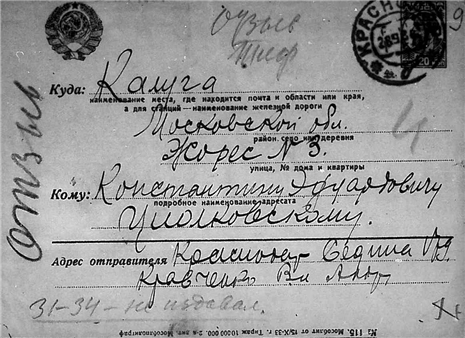 Отзыв
КРАСНО
20
9
Куда: Калуга
наименование места, где находится почта и области или края,
а для станций—наименование железной дороги
Московской обл.
район, село или деревня
Жорес № 3.
улица, № дома и квартиры
Кому: Константину Эдуардовичу
подробное наименование адресата
Циолковскому.
Адрес отправителя Краснодар Седина
Кравченко Вл.
31-34 - не подавал.
отзыв
№ 115. Мособлит от 13/X-33 г. Тираж 10 000 000. 2-я тип. Мособлполиграф